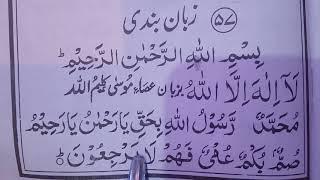 ۵۷ زبان بندی
بِسْمِ اللهِ الرَّحْمٰنِ الرَّحِيْمِ ط
لَآ اِلٰهَ اِلَّا اللهُ بزبان عصاءِ مُوسٰی کلیمُ الله
مُحَمَّدٌ رَّسُوْلُ اللهِ بِحَقِّ یَارَحْمٰنُ یَارَحِیْمُ
صُمٌّۢ بُکْمٌ عُمْیٌ فَهُمْ لَا یَرْجِعُوْنَ ط